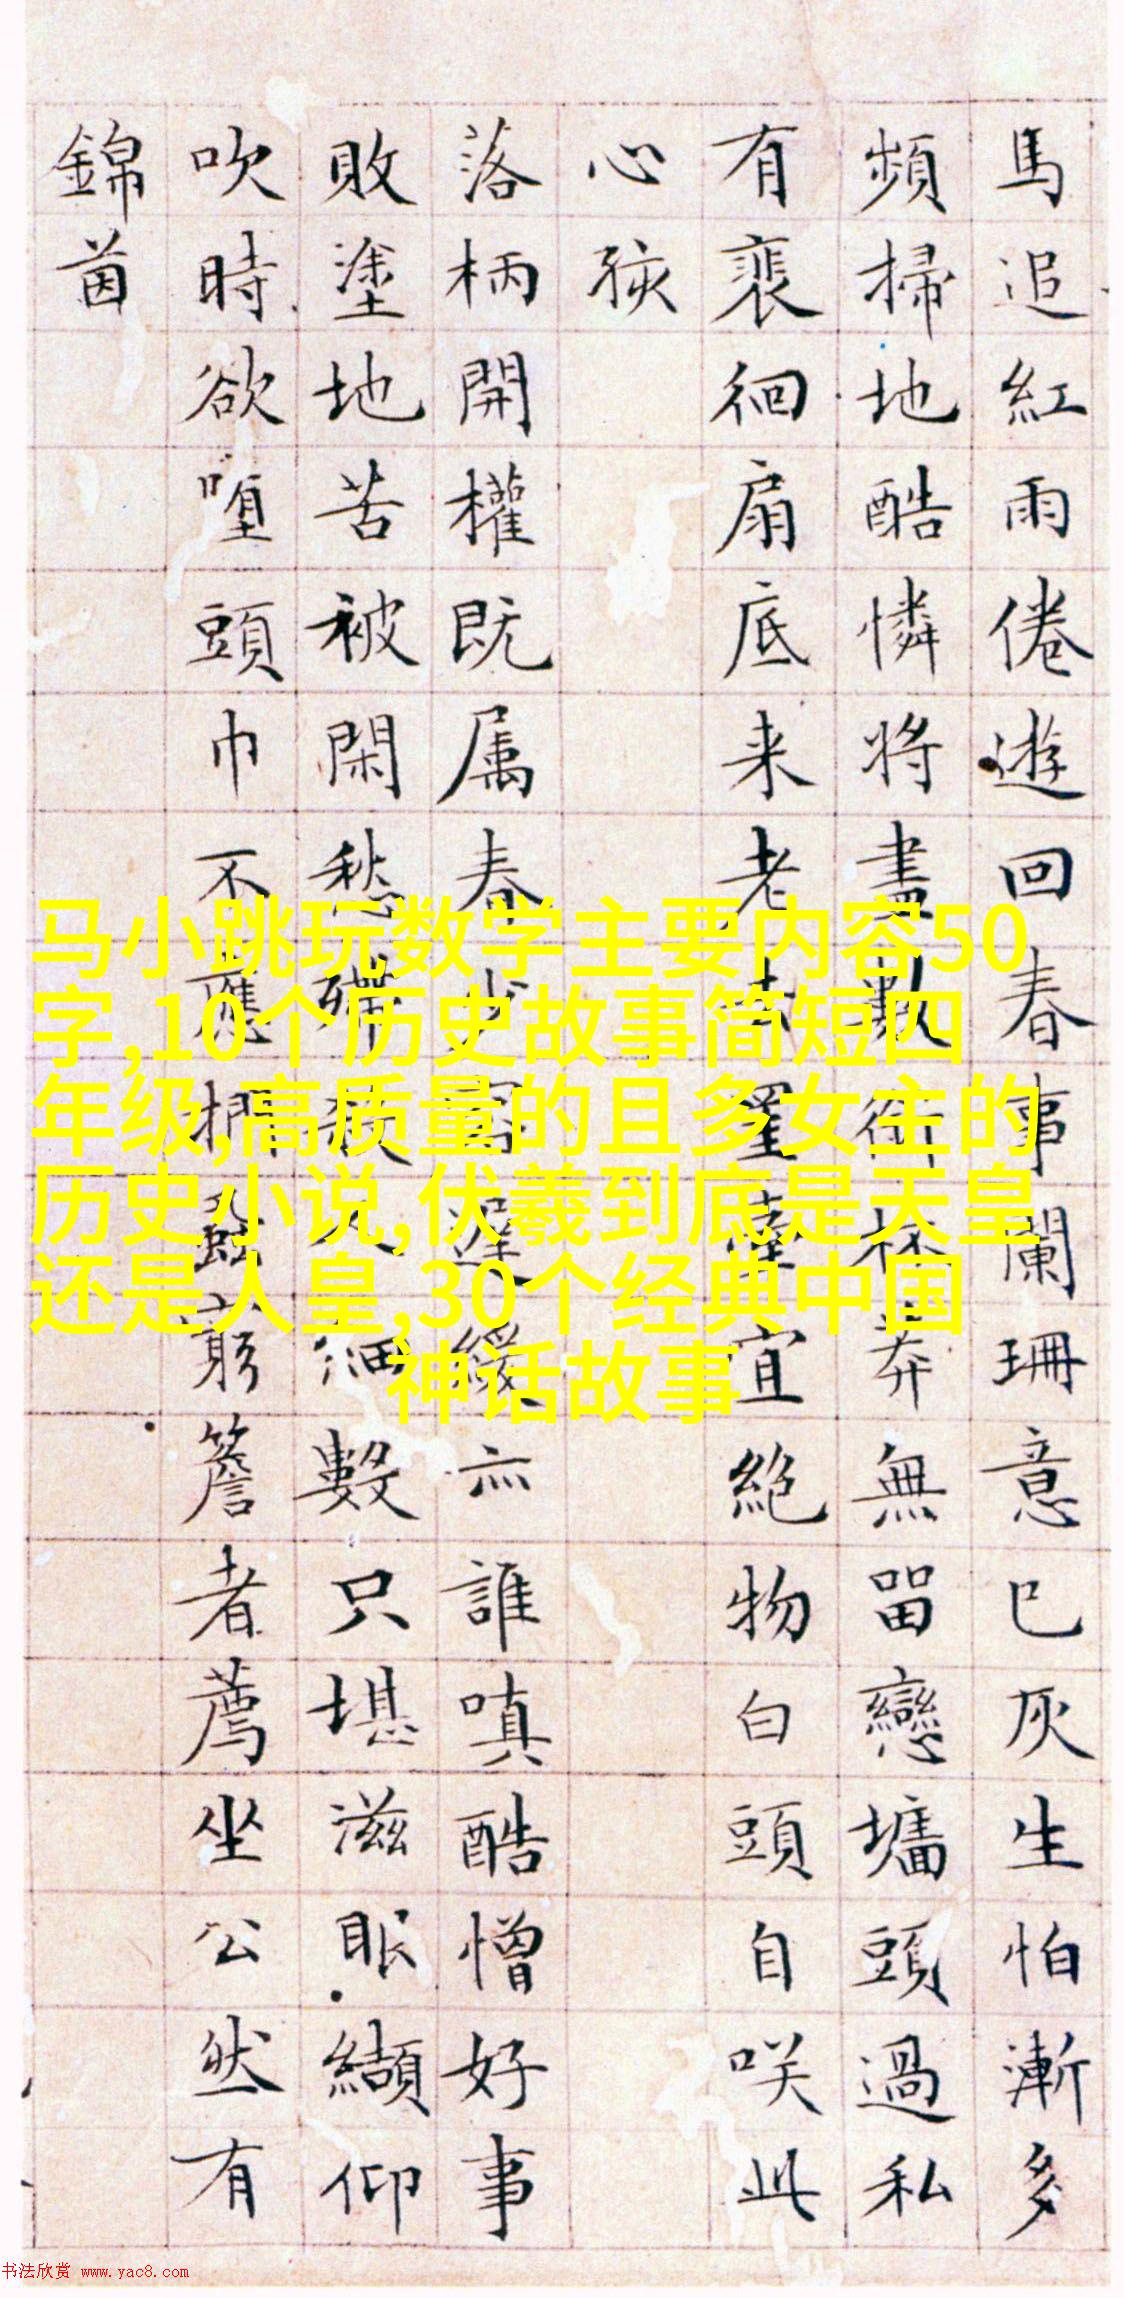 馬追紅雨倦遊回春事闌珊意已灰生怕漸多
頻掃地酷憐將盡數銜杯莽無留戀墻頭過私
有裵徊扇底来老去宜絶物白頭自咲此
心孩
落柄開權既属春少遅緩亦誰嗔酷憎好事
敗塗地苦被閑愁殢殺人細數只堪滋眼纈仰
吹時欲堕頭巾不應捫蝨窮簷者薦坐公然有
錦茵
马小跳玩数学主要内容50
字,10个历史故事简短四
年级,高质量的且多女主的
历史小说,伏羲到底是天皇
还是人皇,30个经典中国
神话故事
书法欣赏 www.yac8.com